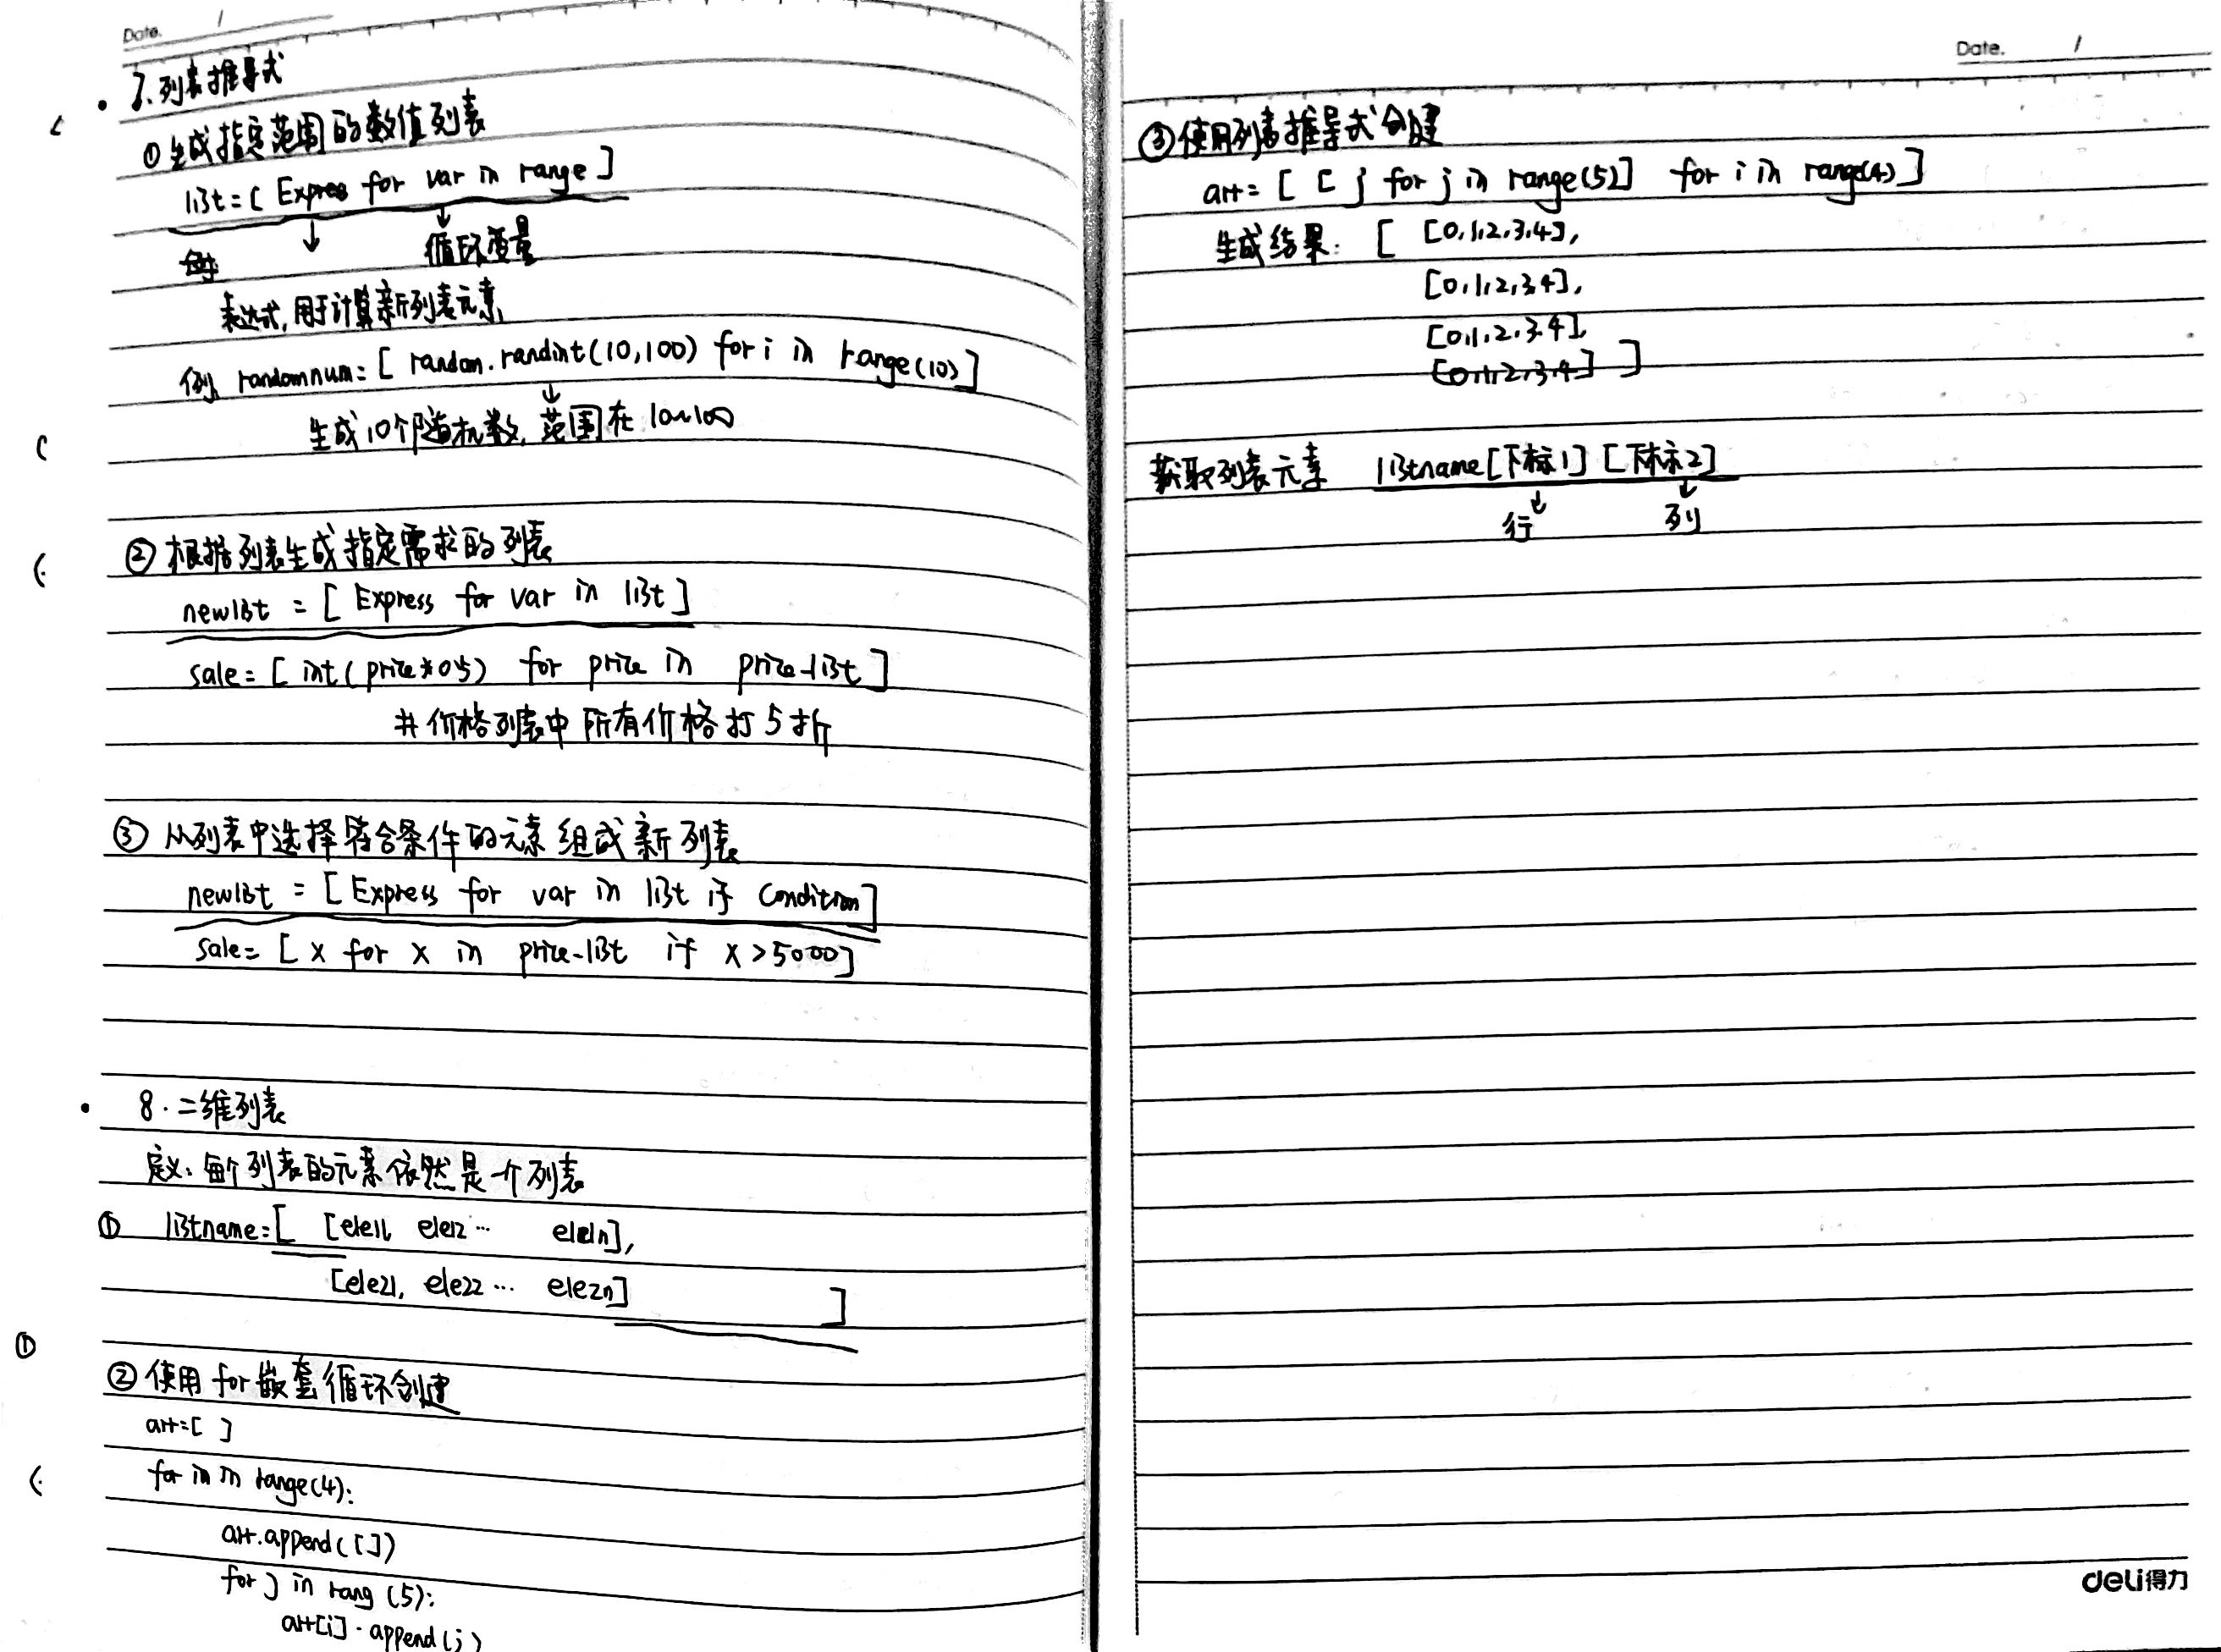 Date. /
7. 列表推导式
① 生成指定范围的数值列表
list = [ Express for var in range ]
循环变量
表达式, 用于计算新列表元素
例, randomnum = [ random.randint(10,100) for i in range(10) ]
生成10个随机数, 范围在 10~100
② 根据列表生成指定需求的列表
newlist = [ Express for var in list ]
sale = [ int( price*0.5 ) for price in price-list ]
# 价格列表中所有价格打5折
③ 从列表中选择符合条件的元素组成新列表
newlist = [ Express for var in list if condition ]
sale = [ x for x in price-list if x > 5000 ]
8. 二维列表
定义: 每个列表的元素依然是一个列表
① listname = [ [ele11, ele12 … ele1n],
[ele21, ele22 … ele2n] ]
①
② 使用 for 嵌套循环创建
arr = [ ]
for in in range(4):
arr.append([])
for j in rang (5):
arr[i].append(j)
Date. /
③ 使用列表推导式创建
arr = [ [ j for j in range(5)] for i in range(4) ]
生成结果: [ [0,1,2,3,4],
[0,1,2,3,4],
[0,1,2,3,4],
[0,1,2,3,4] ]
获取列表元素 listname[下标1] [下标2]
行 列
deli得力